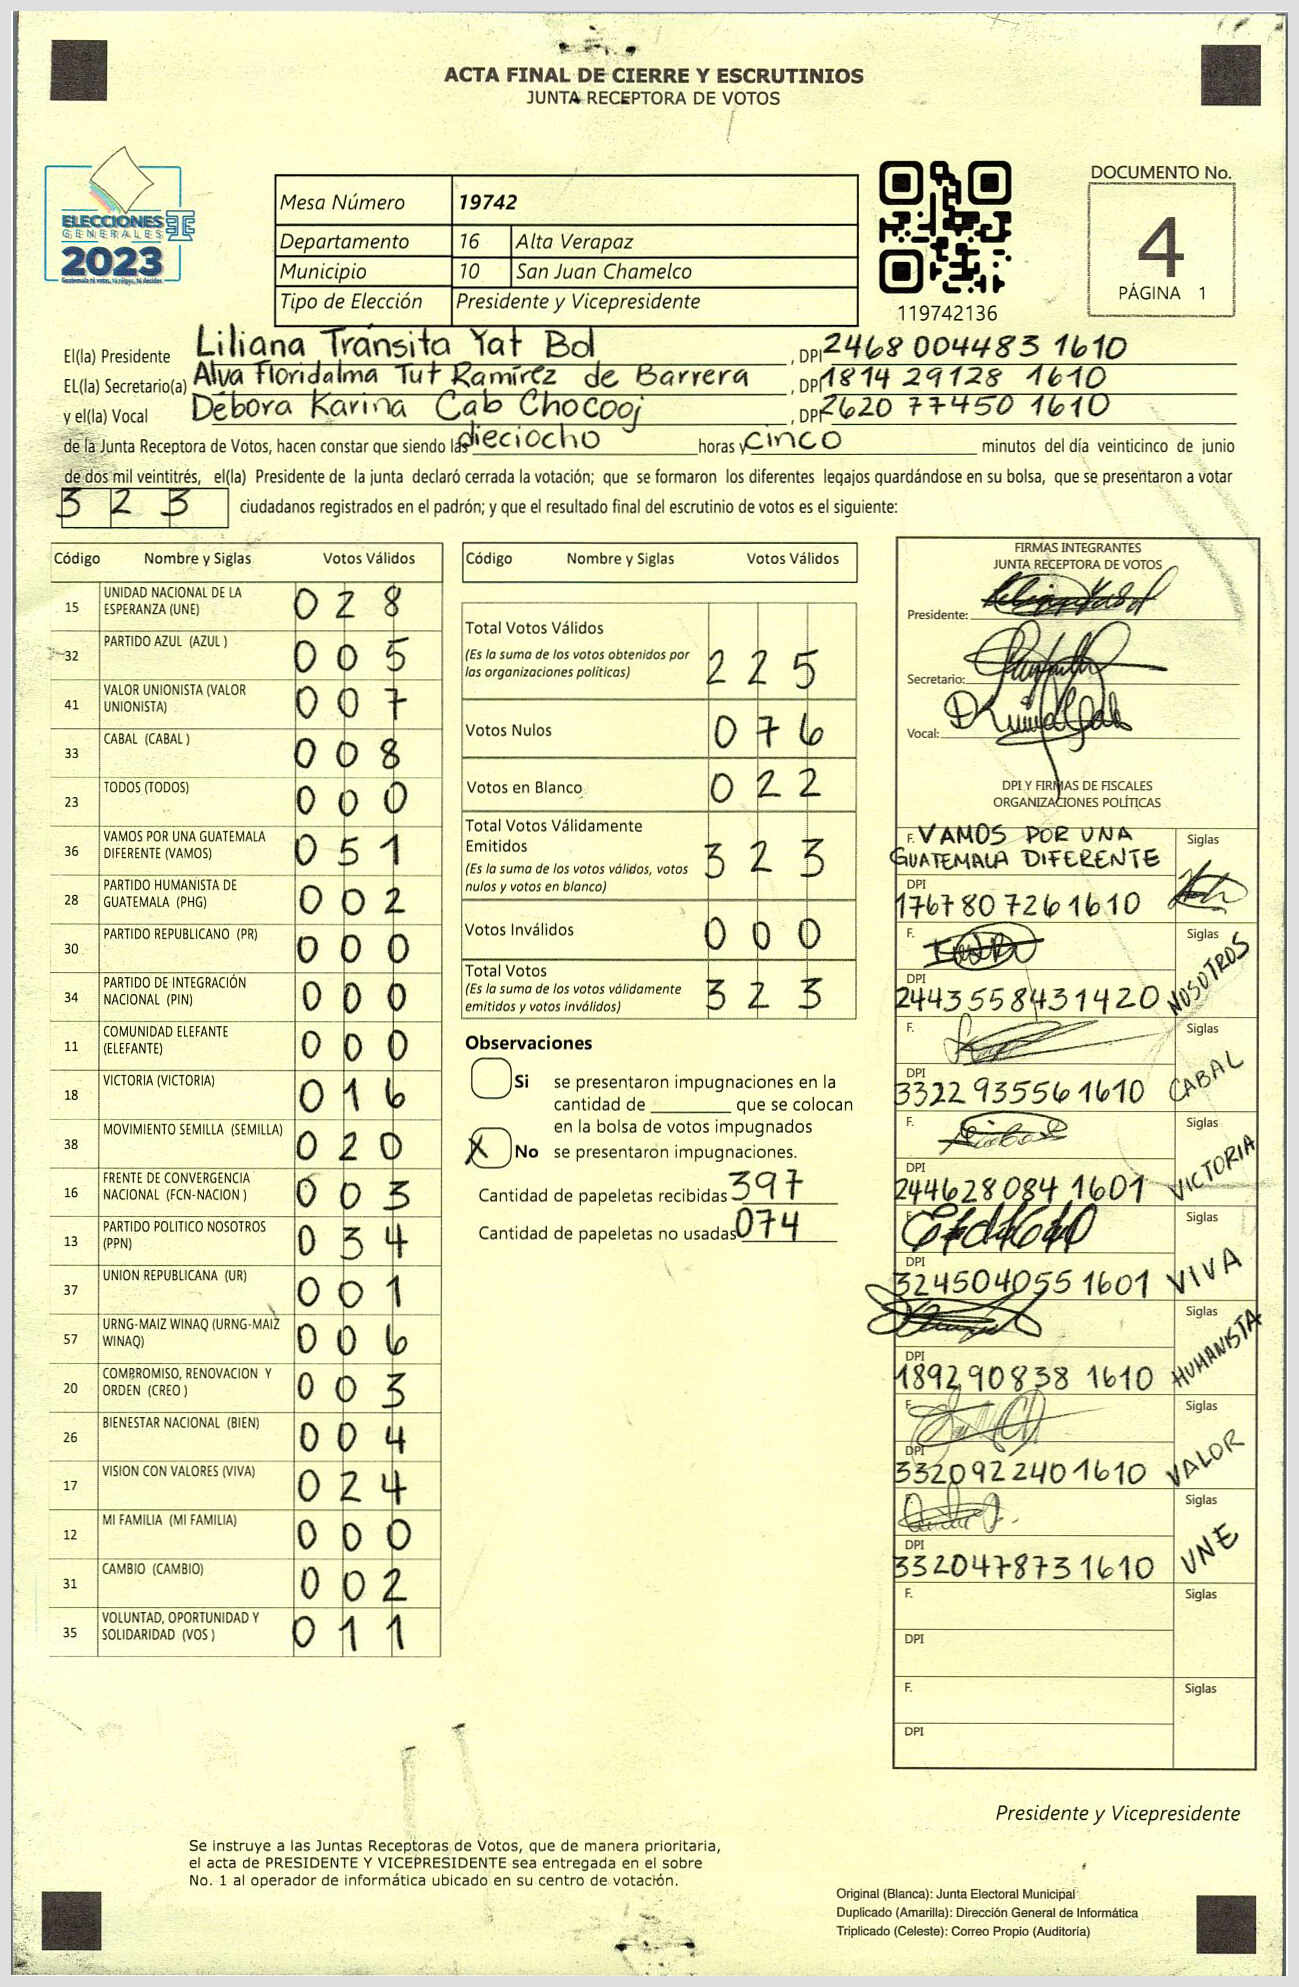 ACTA FINAL DE CIERRE Y ESCRUTINIOS
JUNTA RECEPTORA DE VOTOS
ELECCIONES
GENERALES
2023
Mesa Número 19742
Departamento 16 Alta Verapaz
Municipio 10 San Juan Chamelco
Tipo de Elección Presidente y Vicepresidente
119742136
DOCUMENTO No.
4
PÁGINA 1
El(la) Presidente Liliana Tránsita Yat Bol, DPI 2468 00448 3 1610
EL(la) Secretario(a) Alva Floridalma Tut Ramírez de Barrera, DPI 1814 29128 1610
y el(la) Vocal Débora Karina Cab Chocooj, DPI 2620 77450 1610
de la Junta Receptora de Votos, hacen constar que siendo las dieciocho horas y cinco minutos del día veinticinco de junio
de dos mil veintitrés, el(la) Presidente de la junta declaró cerrada la votación; que se formaron los diferentes legajos guardándose en su bolsa, que se presentaron a votar
3 2 3 ciudadanos registrados en el padrón; y que el resultado final del escrutinio de votos es el siguiente:
Código Nombre y Siglas Votos Válidos
15 UNIDAD NACIONAL DE LA ESPERANZA (UNE) 0 2 8
32 PARTIDO AZUL (AZUL ) 0 0 5
41 VALOR UNIONISTA (VALOR UNIONISTA) 0 0 7
33 CABAL (CABAL ) 0 0 8
23 TODOS (TODOS) 0 0 0
36 VAMOS POR UNA GUATEMALA DIFERENTE (VAMOS) 0 5 1
28 PARTIDO HUMANISTA DE GUATEMALA (PHG) 0 0 2
30 PARTIDO REPUBLICANO (PR) 0 0 0
34 PARTIDO DE INTEGRACIÓN NACIONAL (PIN) 0 0 0
11 COMUNIDAD ELEFANTE (ELEFANTE) 0 0 0
18 VICTORIA (VICTORIA) 0 1 6
38 MOVIMIENTO SEMILLA (SEMILLA) 0 2 0
16 FRENTE DE CONVERGENCIA NACIONAL (FCN-NACION ) 0 0 3
13 PARTIDO POLITICO NOSOTROS (PPN) 0 3 4
37 UNION REPUBLICANA (UR) 0 0 1
57 URNG-MAIZ WINAQ (URNG-MAIZ WINAQ) 0 0 6
20 COMPROMISO, RENOVACION Y ORDEN (CREO ) 0 0 3
26 BIENESTAR NACIONAL (BIEN) 0 0 4
17 VISION CON VALORES (VIVA) 0 2 4
12 MI FAMILIA (MI FAMILIA) 0 0 0
31 CAMBIO (CAMBIO) 0 0 2
35 VOLUNTAD, OPORTUNIDAD Y SOLIDARIDAD (VOS ) 0 1 1
Código Nombre y Siglas Votos Válidos
Total Votos Válidos 2 2 5
(Es la suma de los votos obtenidos por
las organizaciones políticas)
Votos Nulos 0 7 6
Votos en Blanco 0 2 2
Total Votos Válidamente
Emitidos 3 2 3
(Es la suma de los votos válidos, votos
nulos y votos en blanco)
Votos Inválidos 0 0 0
Total Votos 3 2 3
(Es la suma de los votos válidamente
emitidos y votos inválidos)
Observaciones
Si se presentaron impugnaciones en la
cantidad de ________ que se colocan
en la bolsa de votos impugnados
X No se presentaron impugnaciones.
Cantidad de papeletas recibidas 397
Cantidad de papeletas no usadas 074
FIRMAS INTEGRANTES
JUNTA RECEPTORA DE VOTOS
Presidente:
Secretario:
Vocal:
DPI Y FIRMAS DE FISCALES
ORGANIZACIONES POLÍTICAS
F. VAMOS POR UNA Siglas
GUATEMALA DIFERENTE
DPI
1767 80 726 1610
F. Siglas
NOSOTROS
DPI
2443558431420
F. Siglas
CABAL
DPI
3322 93556 1610
F. Siglas
VICTORIA
DPI
244628084 1601
F. Siglas
VIVA
DPI
324504055 1601
Siglas
HUMANISTA
DPI
189290838 1610
F. Siglas
VALOR
DPI
332092240 1610
F. Siglas
UNE
DPI
332047873 1610
F. Siglas
DPI
F. Siglas
DPI
Presidente y Vicepresidente
Se instruye a las Juntas Receptoras de Votos, que de manera prioritaria,
el acta de PRESIDENTE Y VICEPRESIDENTE sea entregada en el sobre
No. 1 al operador de informática ubicado en su centro de votación.
Original (Blanca): Junta Electoral Municipal
Duplicado (Amarilla): Dirección General de Informática
Triplicado (Celeste): Correo Propio (Auditoría)